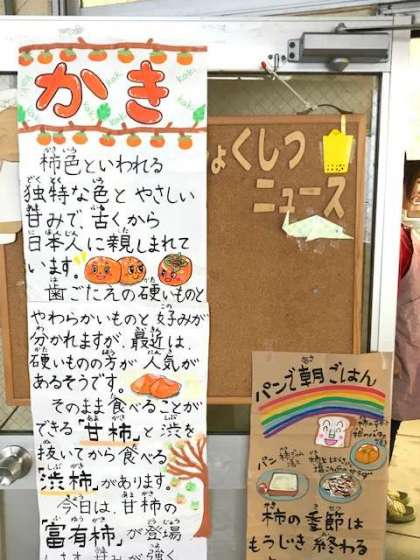 かき
柿色といわれる
独特な色とやさしい
甘みで、古くから
日本人に親しまれて
います。
歯ごたえの硬いものと
やわらかいものと好みが
分かれますが、最近は、
硬いものの方が人気が
あるそうです。
そのまま食べることが
できる「甘柿」と渋を
抜いてから食べる
「渋柿」があります。
今日は、甘柿の
「富有柿」が登場
ょくしつ
ニュース
パンで朝ごはん
パン
柿の季節は
もうじき終わる